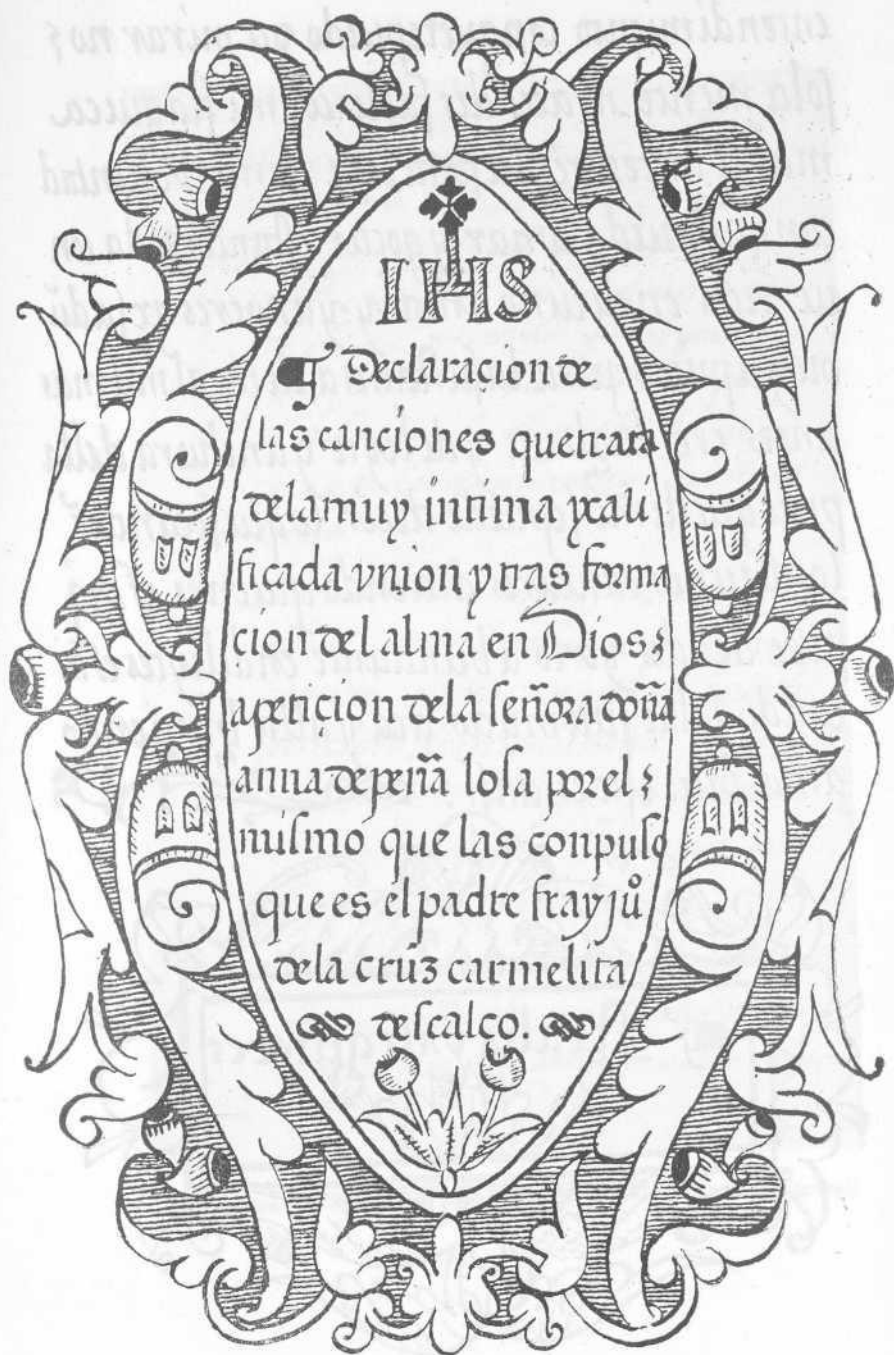 IHS
¶ Declaracion de
las canciones que trata
de la muy intima y cali
ficada vnion y tras forma
cion del alma en Dios
a peticion de la señora doña
anna de peña losa por el
mismo que las conpuso
que es el padre fray juº
de la cruz carmelita
descalço.